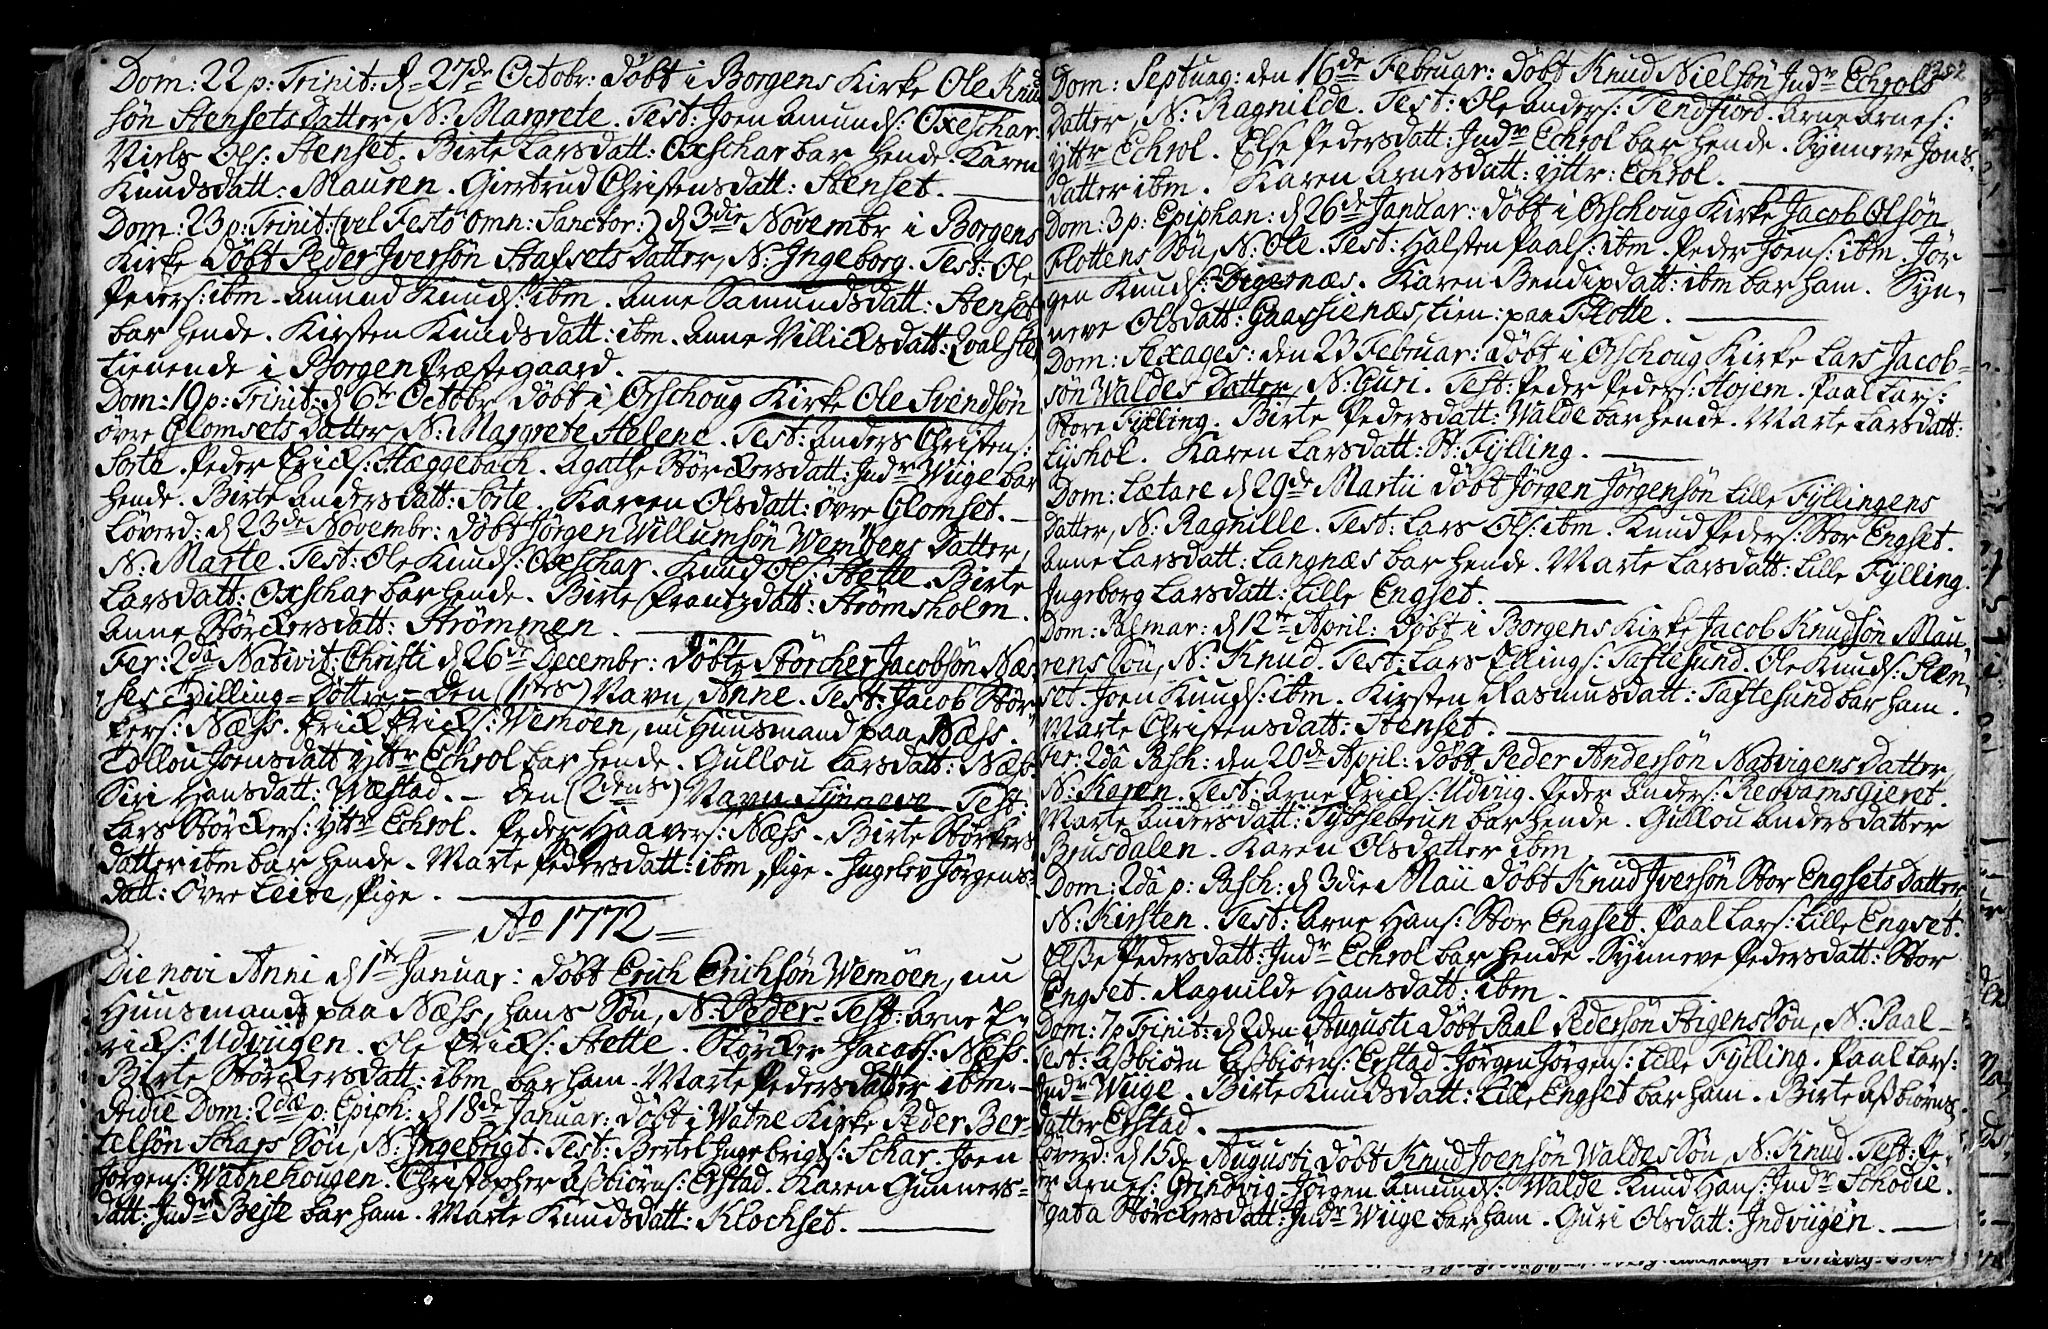 Dom: 22 p: Trinit: d 27de Octobr: döbt i Borgens Kirke Ole Knud
søn Stensets Datter, N: Margrete. Test: Joen Amunds: Oxeschar.
Niels Ols: Stenset. Birte Larsdatt: Oxschar bar hende. Karen
Knudsdatt: Mauren. Giertrud Christensdatt: Stenset.
Dom: 23 p: Trinit: (vel Festo Omn: Sanctor:) d 3die Novembr i Borgens
Kirke döbt Peder Jversön Stafsets Datter, N: Ingeborg. Test: Ole
Peders: ibm. Amund Knuds: ibm. Anne Samundsdatt: Stenset
bar hende. Kirsten Knudsdatt: ibm. Anne Villicksdatt: Qvalsted
tienende i Borgen Præstegaard.
Dom: 19 p: Trinit: d 6te Octobr döbt i Orschoug Kirke Ole Svendsön
övre Glomsets Datter, N: Margrete Helene. Test: Anders Christens:
Sorte. Peder Ericks: Hæggebach. Agathe Störckersdatt: Indr Wiige bar
hende. Birte Andersdatt: Sorte. Karen Olsdatt: övre Glomset.
Löverd: d 23de Novembr: döbt Jörgen Willumsön Wemöens Datter,
N: Marte. Test: Ole Knuds: Oxeschar. Knud Ols: Stette. Birte
Larsdatt: Oxschar bar hende. Birte Frantzdatt: Strömsholm.
Anne Störckersdatt: Strömmen.
Fer: 2da Nativit: Christi d 26de Decembr: döbte Störcher Jacobsön Næs-
ses Tvilling-Döttre. - Den (1stes) Navn, Anne. Test: Jacob Stör-
kers: Næss. Erick Ericks: Wemoen, nu Huusmand paa Næss.
Tollou Joensdatt yttr Echrol bar hende. Gullou Larsdatt: Næss.
Siri Hansdatt: Wæstad. - Den (2dens) Navn Synneve. Test:
Lars Störckers: yttr Echrol. Peder Haavers: Næss. Birte Störkers
datter ibm bar hende. Marte Pedersdatt: ibm, Pige. Ingelev Jörgens-
datt: Övre Leere, Pige.
Ao 1772
Die novi Anni d 1te Januar: döbt Erich Erichsön Wemöen, nu
Huusmand paa Næss, hans Sön, N: Peder. Test: Arne E-
ricks: Udviigen. Ole Ericks: Stette. Störcker Jacobs: Næss.
Birte Störckersdatt: ibm bar ham. Marte Pedersdatter ibm.
Pridie Dom: 2dæ p: Epiph: d 18de Januar: döbt i Watne Kirke Peder Ber-
telsön Schars Sön, N: Ingebrigt. Test: Bertel Ingebrigs: Schar. Joen
Jörgens: Watnehougen. Christopher Assbiörns: Erstad. Karen Gunners-
datt: Indr Bejte bar ham. Marte Knudsdatt: Klochset.
252
Dom: Septuag: den 16de Februar: döbt Knud Nielsön Indr Echrols
Datter, N: Ragnilde. Test: Ole Anders: Tendfiord. Arne Arnes:
yttr Echrol. Else Pedersdatt: Indr Echrol bar hende. Synneve Jons
datter ibm. Karen Arnesdatt: yttr: Echrol.
Dom: 3 p: Epiphan: d 26de Januar: döbt i Orschoug Kirke Jacob Olsön
Flottens Sön, N: Ole. Test: Halsten Paals: ibm. Peder Joens: ibm. Jör
gen Knuds: Digernæs. Karen Bendixdatt: ibm bar ham. Syn-
neve Olsdatt: Gaassienæs tien: paa Flotte.
Dom: Sexages: den 23 Februar: döbt i Orschoug Kirke Lars Jacob-
sön Waldes Datter, N: Guri. Test: Peder Peders: Hojem. Paal Lars:
Store Fylling. Birte Pedersdatt: Walde bar hende. Marte Larsdatt:
Lyshol. Karen Larsdatt: St: Fylling.
Dom: Lætare d 29de Martii döbt Jörgen Jörgensön Lille Fyllingens
Datter, N: Ragnille. Test: Lars Ols: ibm. Knud Peders: Stor Engset.
Anne Larsdatt: Langnæs bar hende. Marte Larsdatt: Lille Fylling.
Ingeborg Larsdatt: Lille Engset.
Dom: Palmar: d 12te April: döbt i Borgens Kirke Jacob Knudsön Mau-
rens Sön, N: Knud. Test: Lars Ellings: Taftesund. Ole Knuds: Sten-
set. Joen Knuds: ibm. Kirsten Rasmusdatt: Taftesund bar ham.
Marte Christensdatt: Stenset.
Fer: 2dâ Pasch: den 20de April: döbt Peder Andersön Natvigens Datter,
N: Karen. Test: Arne Ericks: Udviig. Peder Anders: Redvamsgieret.
Marte Andersdatt: Tyssebrun bar hende. Gullou Andersdatter
Brusdalen. Karen Olsdatter ibm
Dom: 2dâ p: Pasch: d 3die Maii döbt Knud Jversön Stor Engsets Datter
N: Kirsten. Test: Arne Hans: Stor Engset. Paal Lars: Lille Engset.
Elsse Pedersdatt: Indr Echrol bar hende. Synneve Pedersdatt: Stor
Engset. Ragnilde Hansdatt: ibm.
Dom: 7 p Trinit: d 2den Augusti döbt Paal Pedersön Stigens Sön, N: Paal
Test: Assbiörn Assbiörns: Erstad. Jörgen Jörgens: Lille Fylling. Paal Lars:
Indr Wiige. Birte Knudsdatt: Lille Engset bar ham. Birte Assbiörns
datter Erstad.
Löverd: d 15de Augusti döbt Knud Joensön Waldes Sön, N: Knud. Test: Pe-
der Arnes: Grindvig. Jörgen Amunds: Walde. Knud Hans: Indr Schodie.
Agata Störckersdatt: Indr Wiige bar ham. Guri Olsdatt: Indviigen.